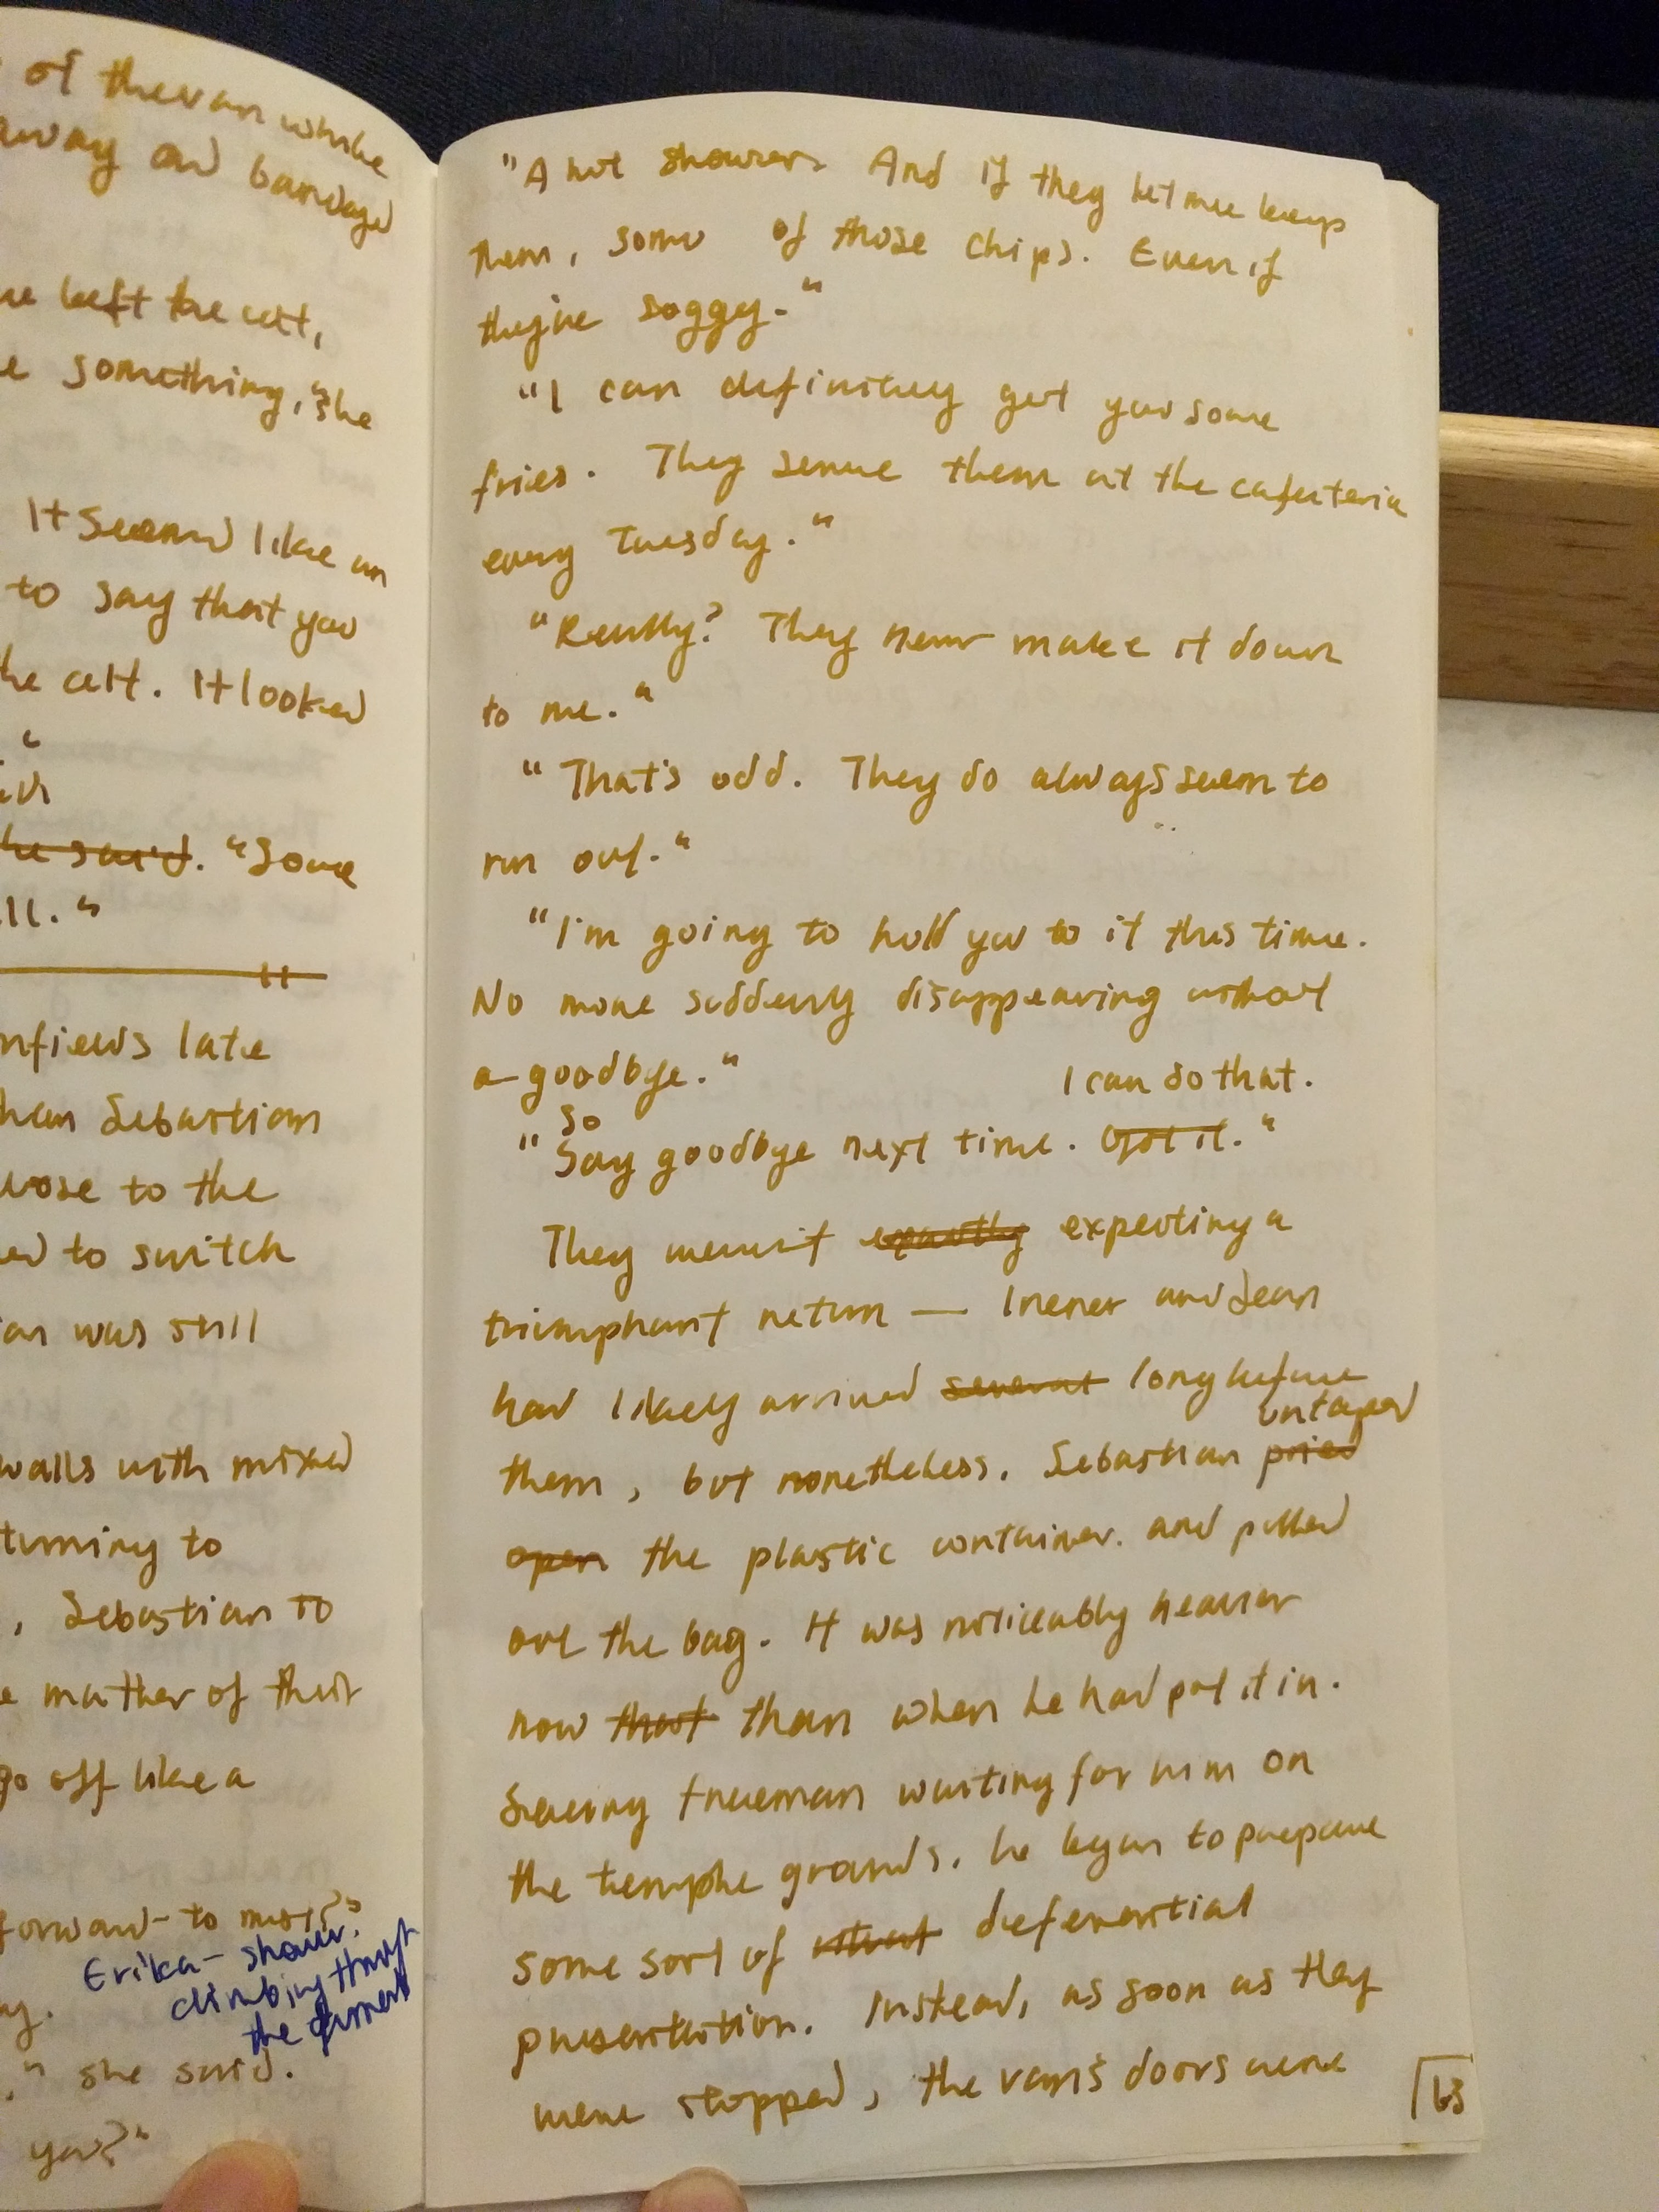 of the van while
away and bandaged
left the cell,
something," she
It seemed like an
to say that you
the cell. It looked
"
he said. "Some
ll."
nfields late
han Sebastian
close to the
ed to switch
an was still
walls with mixed
turning to
, Sebastian to
e matter of their
go off like a
forward to most?"
Erika - shower.
climbing through
the
y.
," she said.
you?"
"A hot shower. And if they let me keep
them, some of those chips. Even if
they're soggy."
"I can definitely get you some
fries. They serve them at the cafeteria
every Tuesday."
"Really? They never make it down
to me."
"That's odd. They do always seem to
run out."
"I'm going to hold you to it this time.
No more suddenly disappearing without
a goodbye."
I can do that.
So
"Say goodbye next time. Got it."
They weren't exactly expecting a
triumphant return — Inener and Jean
had likely arrived several long before
untaped
them, but nonetheless. Sebastian pried
open the plastic container. and pulled
out the bag. It was noticeably heavier
now that than when he had put it in.
Seeing Trueman waiting for him on
the temple grounds, he began to prepare
some sort of deferential
presentation. Instead, as soon as they
were stopped, the van's doors were
63